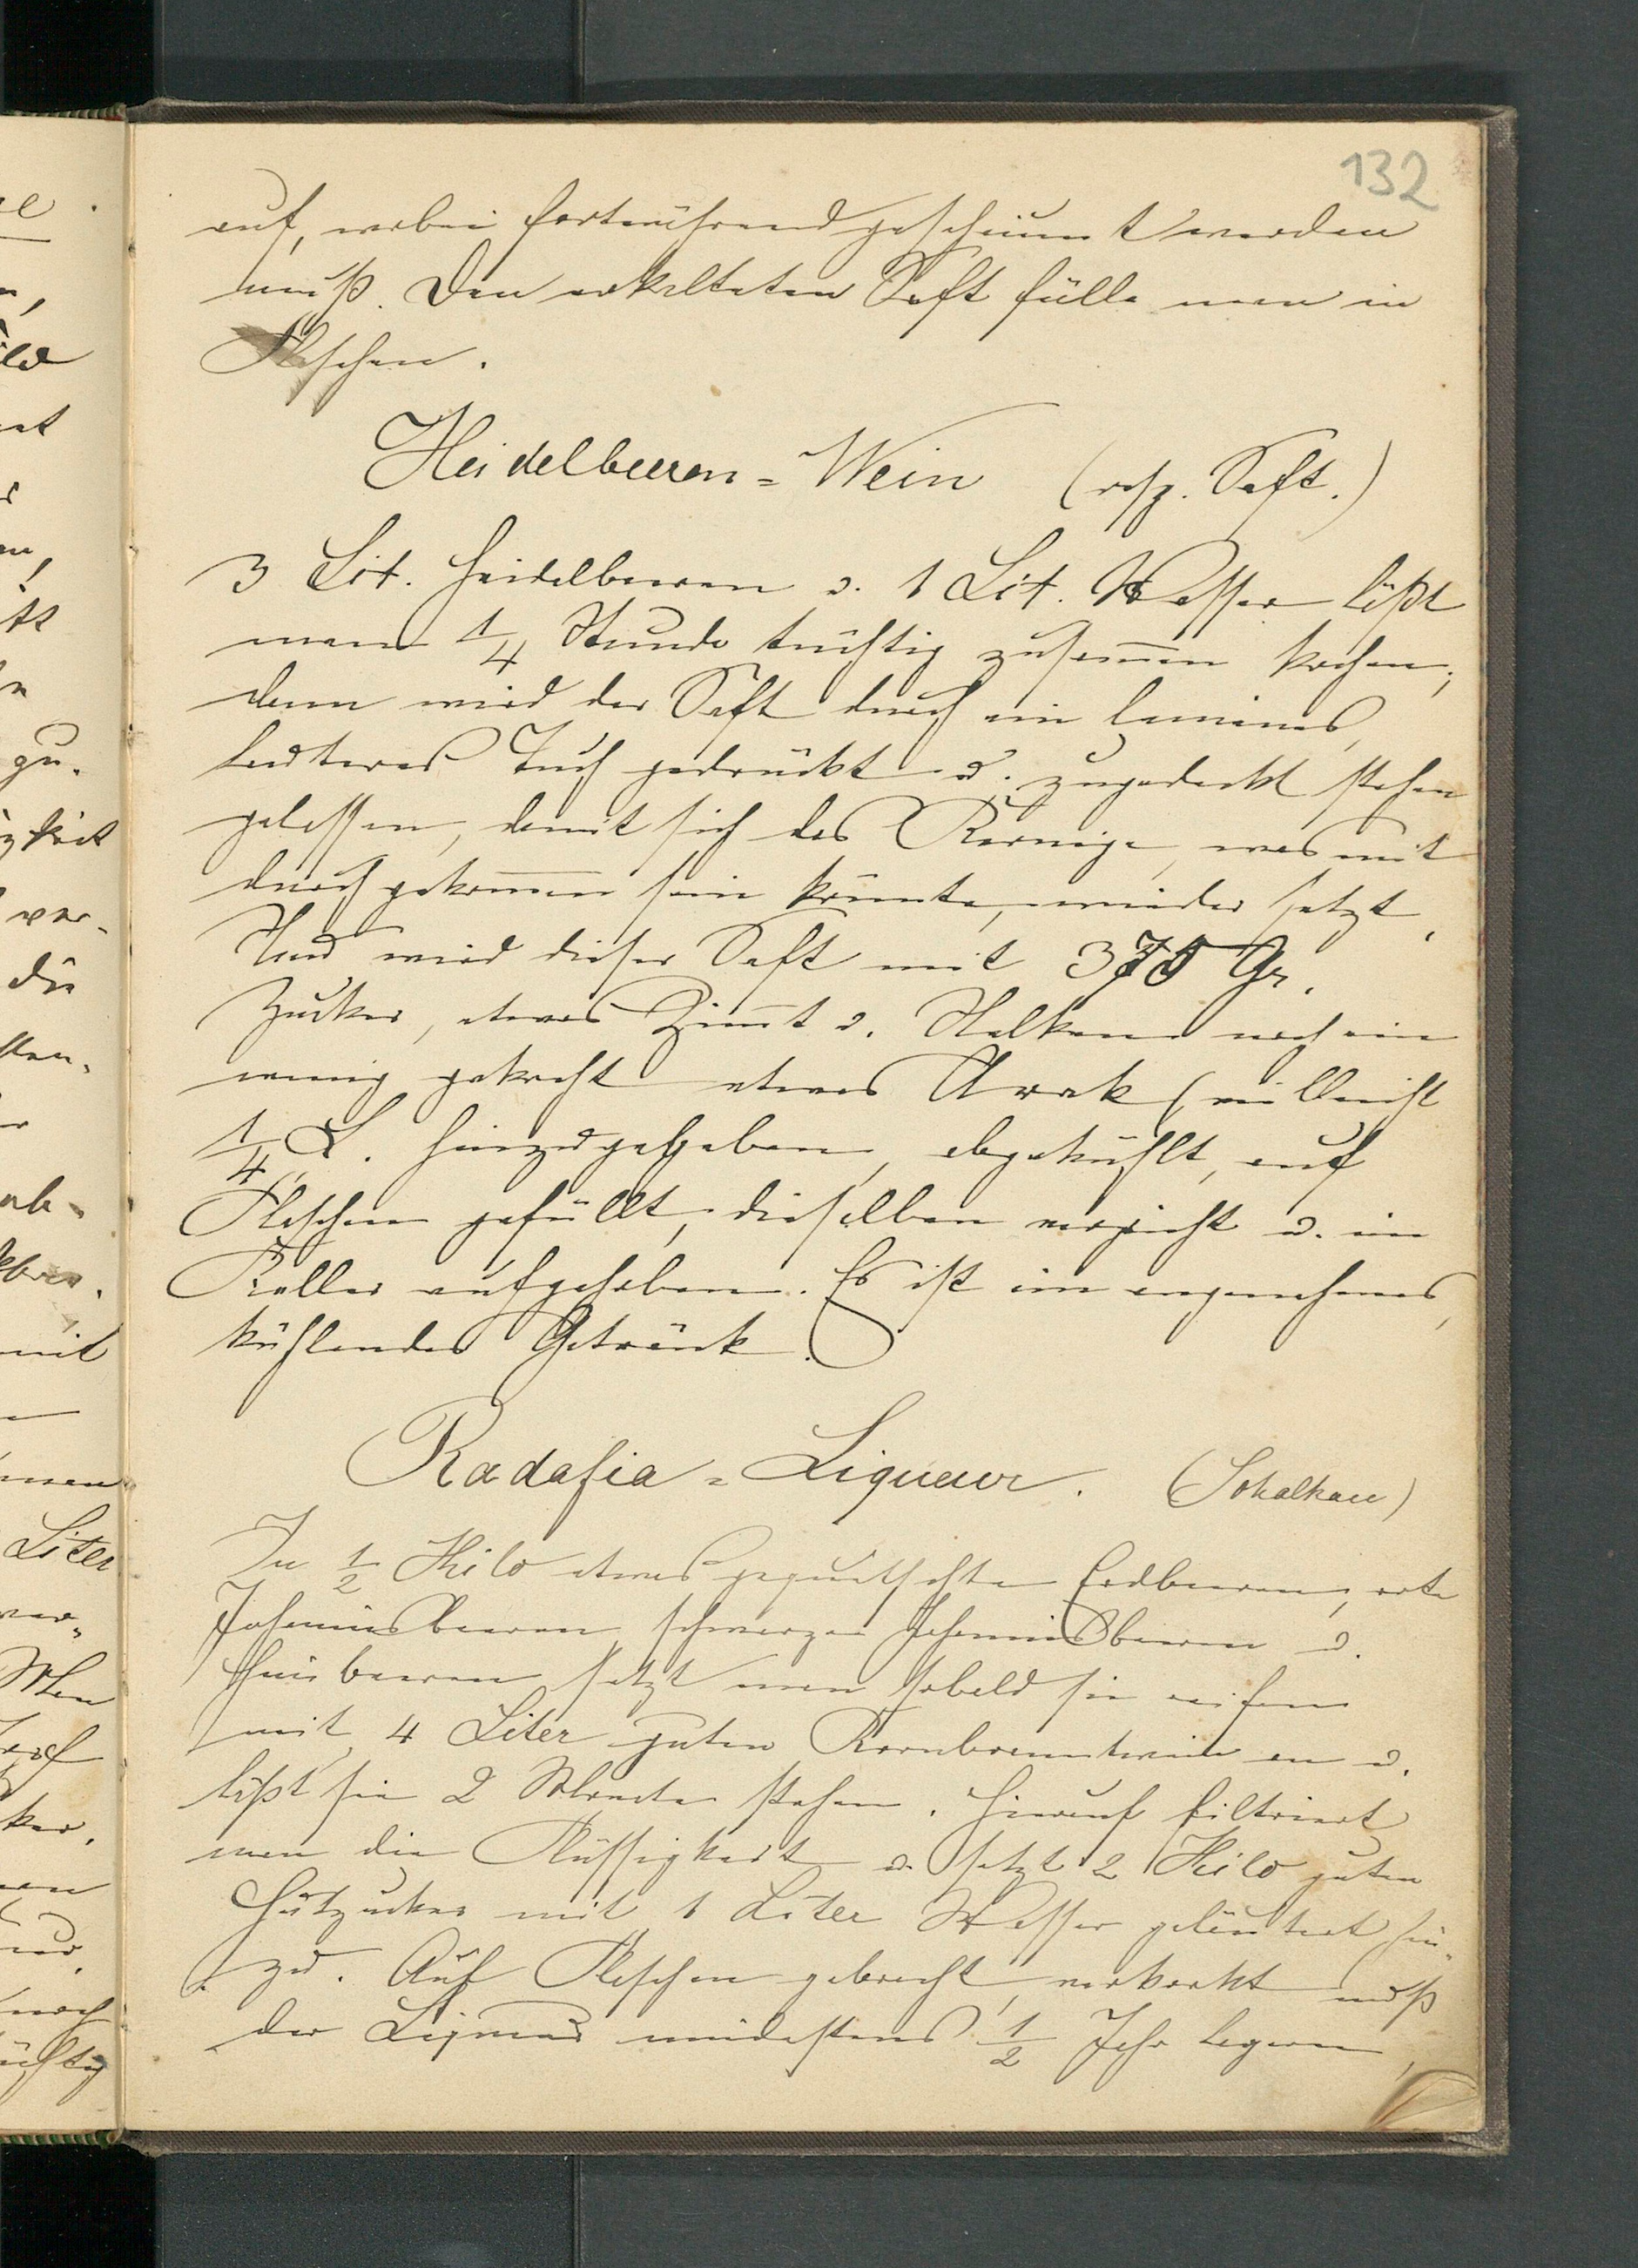 132
auf, wobei fortwährend geschäumt werden
muß. Den erkalteten Saft fülle man in
Flaschen.
Heidelbeeren = Wein (resp. Saft.)
3 Lit. Heidelbeeren u. 1 Lit. Wasser läßt
man 1/4 Stunde tüchtig zusam̅en kochen,
dann wird der Saft durch ein leinenes,
lauteres Tuch gedrückt u. zugedeckt stehen
gelassen, damit sich das Kernige, was mit
durchgekom̅en sein könnte, nieder setzt.
Und wird dieser Saft mit 375 Gr.
Zucker, etwas Zim̅t u. Nelken noch ein
wenig gekocht etwas Arrak (vielleicht
1/4 L. hinzugegeben, abgekühlt, auf
Flaschen gefüllt, dieselben verpicht u. im
Keller aufgehoben. Es ist ein angenehmes,
kühlendes Getränk.
Radafia = Liqueur. (Schalkau)
Zu 1/2 Kilo etwas gequetschten Erdbeeren, rote
Johannisbeeren, schwarze Johannisbeeren u.
Himbeeren setzt man sobald sie reifen
mit 4 Liter guten Kornbranntwein an u.
läßt sie 2 Monate stehen. Hierauf filtriert
man die Flüssigkeit u. setzt 2 Kilo guten
Hutzucker mit 1 Liter Wasser geläutert hin-
zu. Auf Flaschen gebracht, verkorkt muß
der Liqueur mindestens 1/2 Jahr lagern,